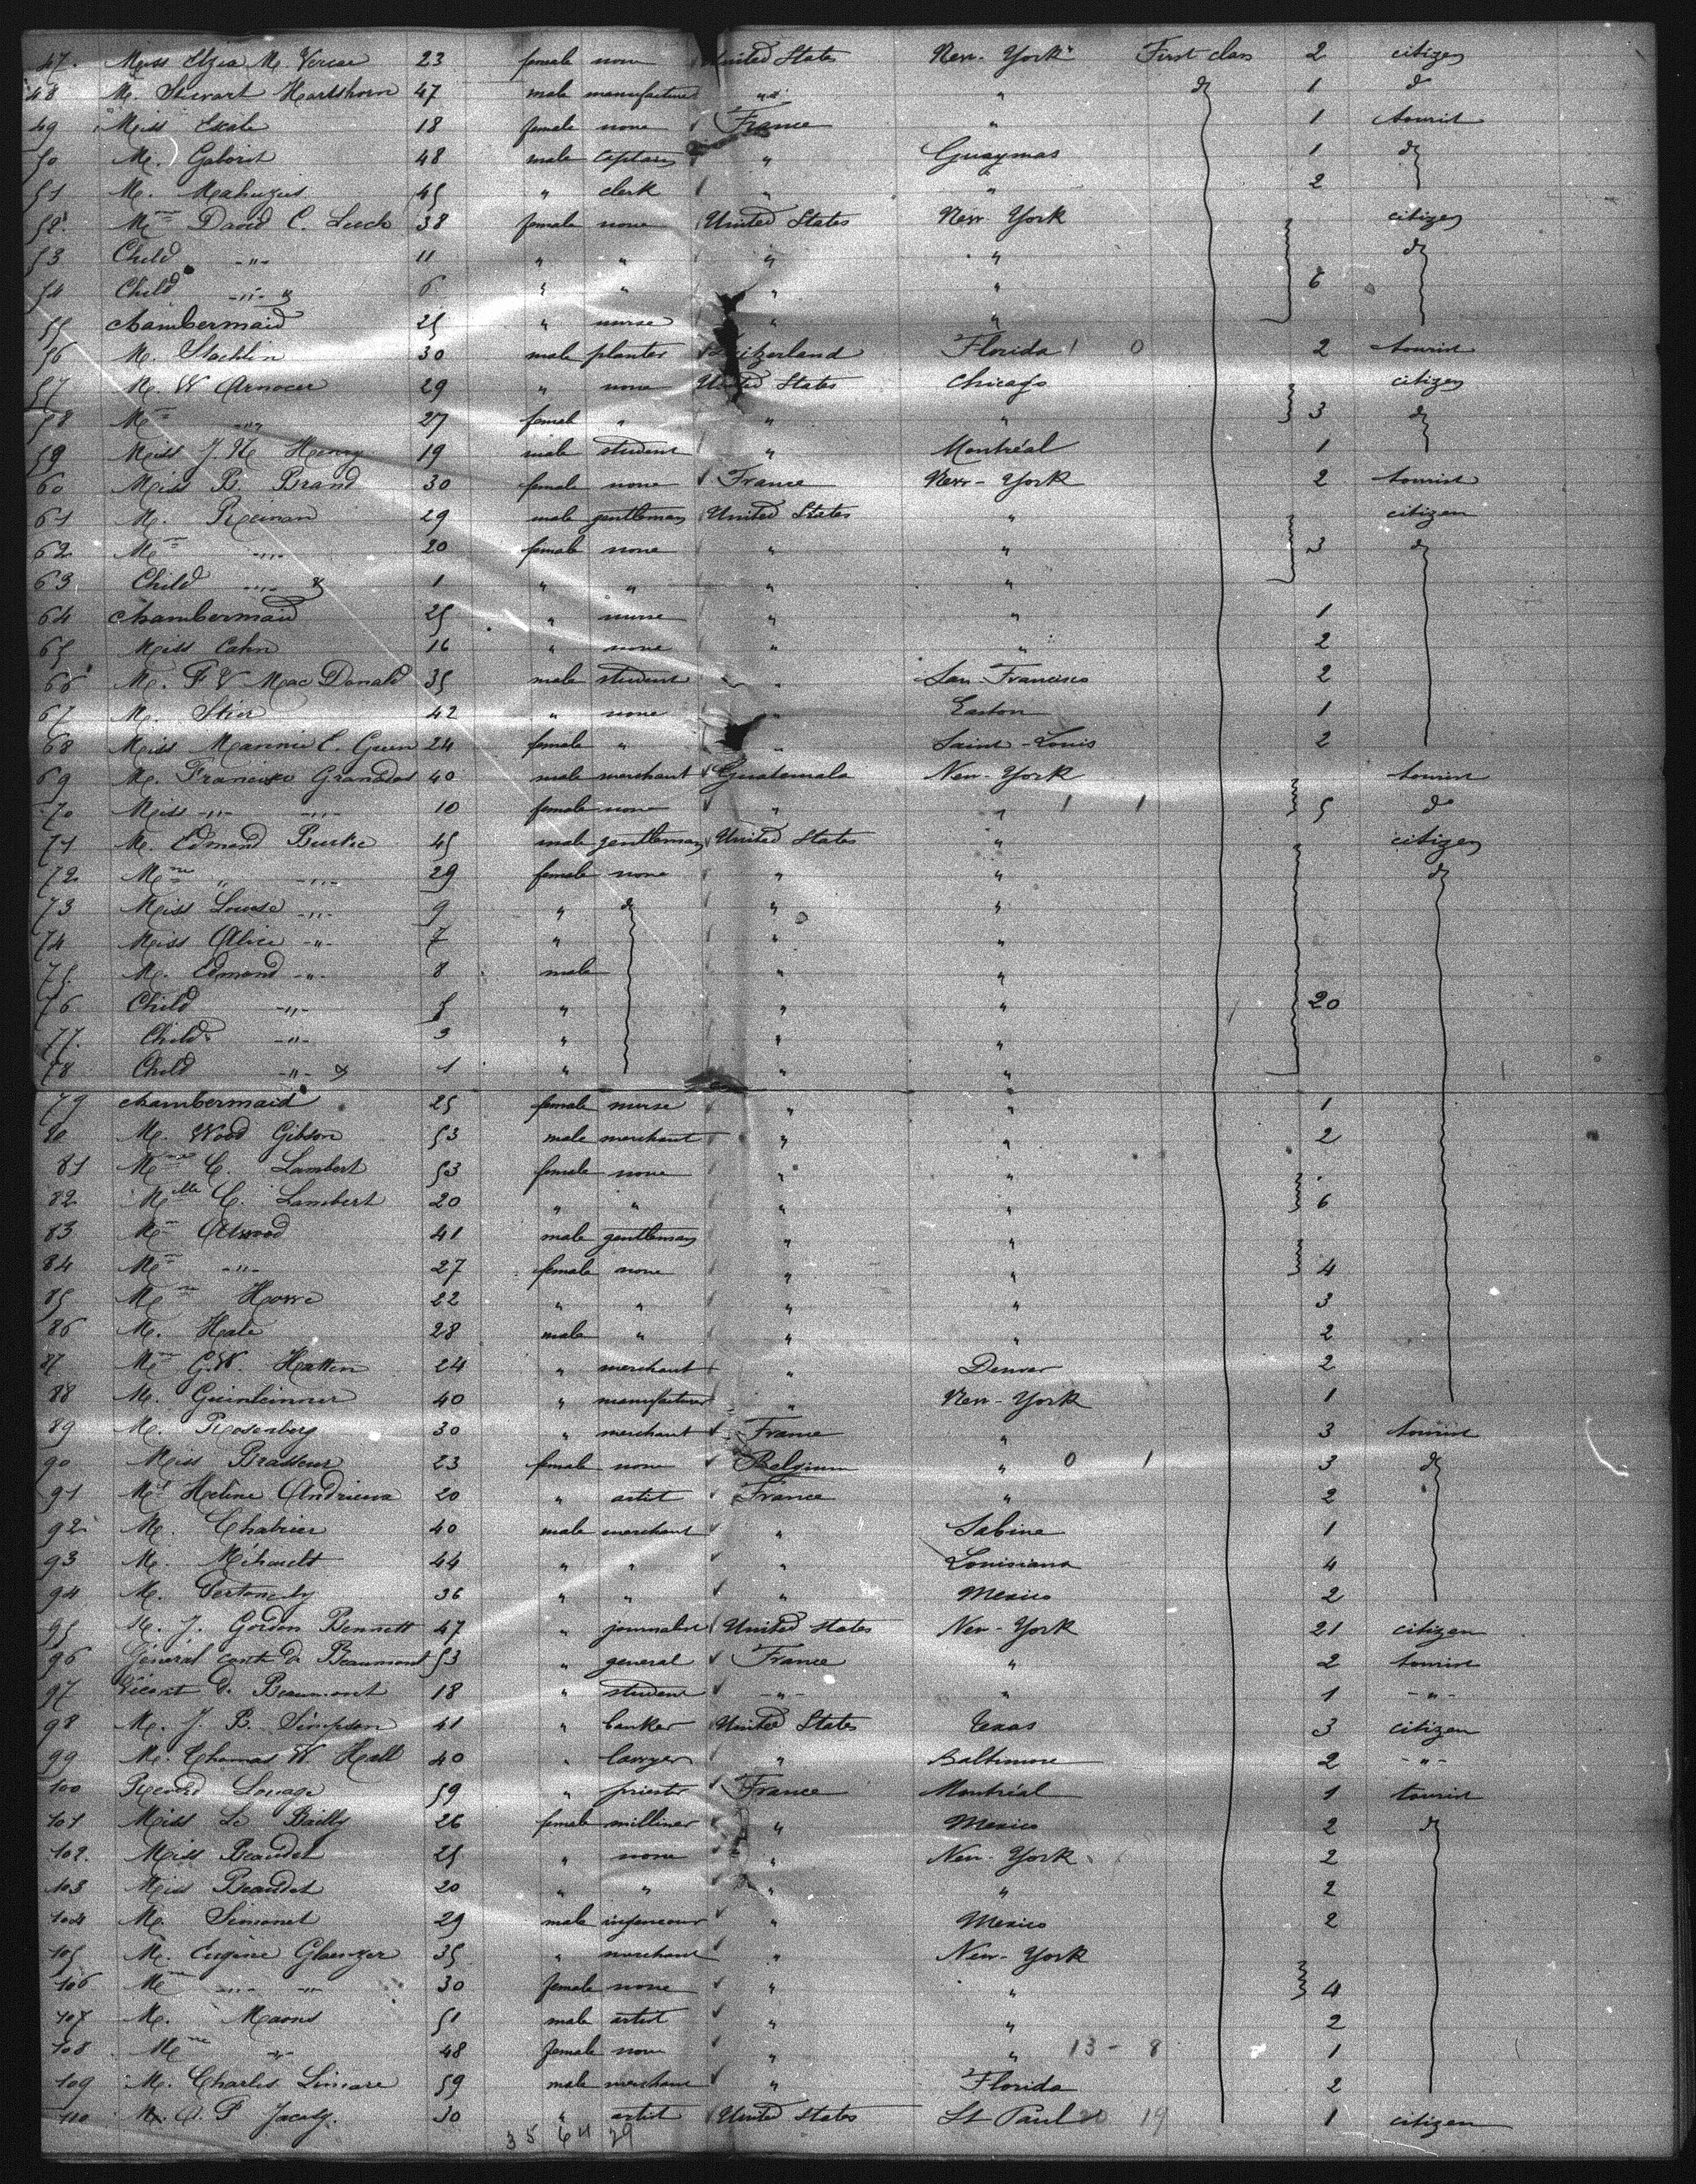 47. Miss M. 23 female none United States New-York First class 2 citizen
48 M. Stewart Hartshorn 47 male manufacturer " " do 1 do
49 Miss 18 female none France " 1 tourist
50 M. Gaborit 48 male captain " Guaymas 1 do
51 M. 45 " clerk " " 2
52 Mme David C. Leech 38 female none United States New-York citizen
53 Child -"- 11 " " " " do
54 Child -"- & 6 " " " " 6
55 chambermaid 25 " nurse " "
56 M. Staehlin 30 male planter Switzerland Florida 1 0 2 tourist
57 M. W 29 " none United States Chicago citizen
58 Mme -"- 27 female " " " 3 do
59 Miss J. H Henry 19 male student " Montréal 1
60 Miss B. Brand 30 female none France New-York 2 tourist
61 M. 29 male gentleman United States " citizen
62 Mme -"- 20 female none " " 3 do
63 Child -"- & 1 " " " "
64 chambermaid 25 " nurse " " 1
65 Miss Cahn 16 " none " " 2
66 M. F V Mac Donald 35 male student " San-Francisco 2
67 M. Stier 42 " none " Easton 1
68 Miss E. Green 24 female " " Saint-Louis 2
69 M. Francisco Granados 40 male merchant Guatemala New-York tourist
70 Miss -"- -"- 10 female none " " 1 1 5 do
71 M. Edmond Burke 45 male gentleman United States " citizen
72 Mme " -"- 29 female none " " do
73 Miss Louise -"- 9 " do " "
74 Miss Alice -"- 7 " " "
75. M. Edmond -"- 8 male " "
76 Child -"- 5 " " " 20
77. Child -"- 3 " " "
78 Child -"- & 1 " " "
79 chambermaid 25 female nurse " " 1
80 M. Wood Gibson 53 male merchant " " 2
81 Mme C. Lambert 53 female none " "
82 Melle C. Lambert 20 " " " " 6
83 M. Atwood 41 male gentleman " "
84 Mme -"- 27 female none " " 4
85 Mme Howe 22 " " " " 3
86 M. Hale 28 male " " " 2
87 M G.W. 24 " merchant " Denver 2
88 M. 40 " manufacturer " New-York 1
89 M. Rosenberg 30 " merchant France " 3 tourist
90 Miss Brasseur 23 female none Belgium " 0 1 3 do
91 20 " artist France " 2
92 M. Chabrier 40 male merchant " Sabine 1
93 M. 44 " " " Louisiana 4
94 M. 36 " " " Mexico 2
95 M. J. Gordon Bennett 47 " journalist United States New-York 21 citizen
96 Général comte de Beaumont 53 " general France " 2 tourist
97 de Beaumont 18 " student -"- " 1 -"-
98 M. J. B. Simpson 41 " banker United States Texas 3 citizen
99 M. Thomas W Hall 40 " lawyer " Baltimore 2 -"-
100 59 " priest France Montréal 1 tourist
101 Miss Le Bailly 26 female milliner " Mexico 2 do
102. Miss Beaudet 25 " none " New-York 2
103 Miss Beaudet 20 " " " " 2
104 M. Simonet 29 male " Mexico 2
105 M. Eugène Glaenzer 35 " merchant " New-York
106 Mme -"- -"- 30 female none " " 4
107 M. 51 male artist " " 2
108 Mme -"- 48 female none " " 13-8 1
109 M. Charles 59 male merchant " Florida 2
110 M. 30 " artist United States St Paul 20 19 1 citizen
35 64 29